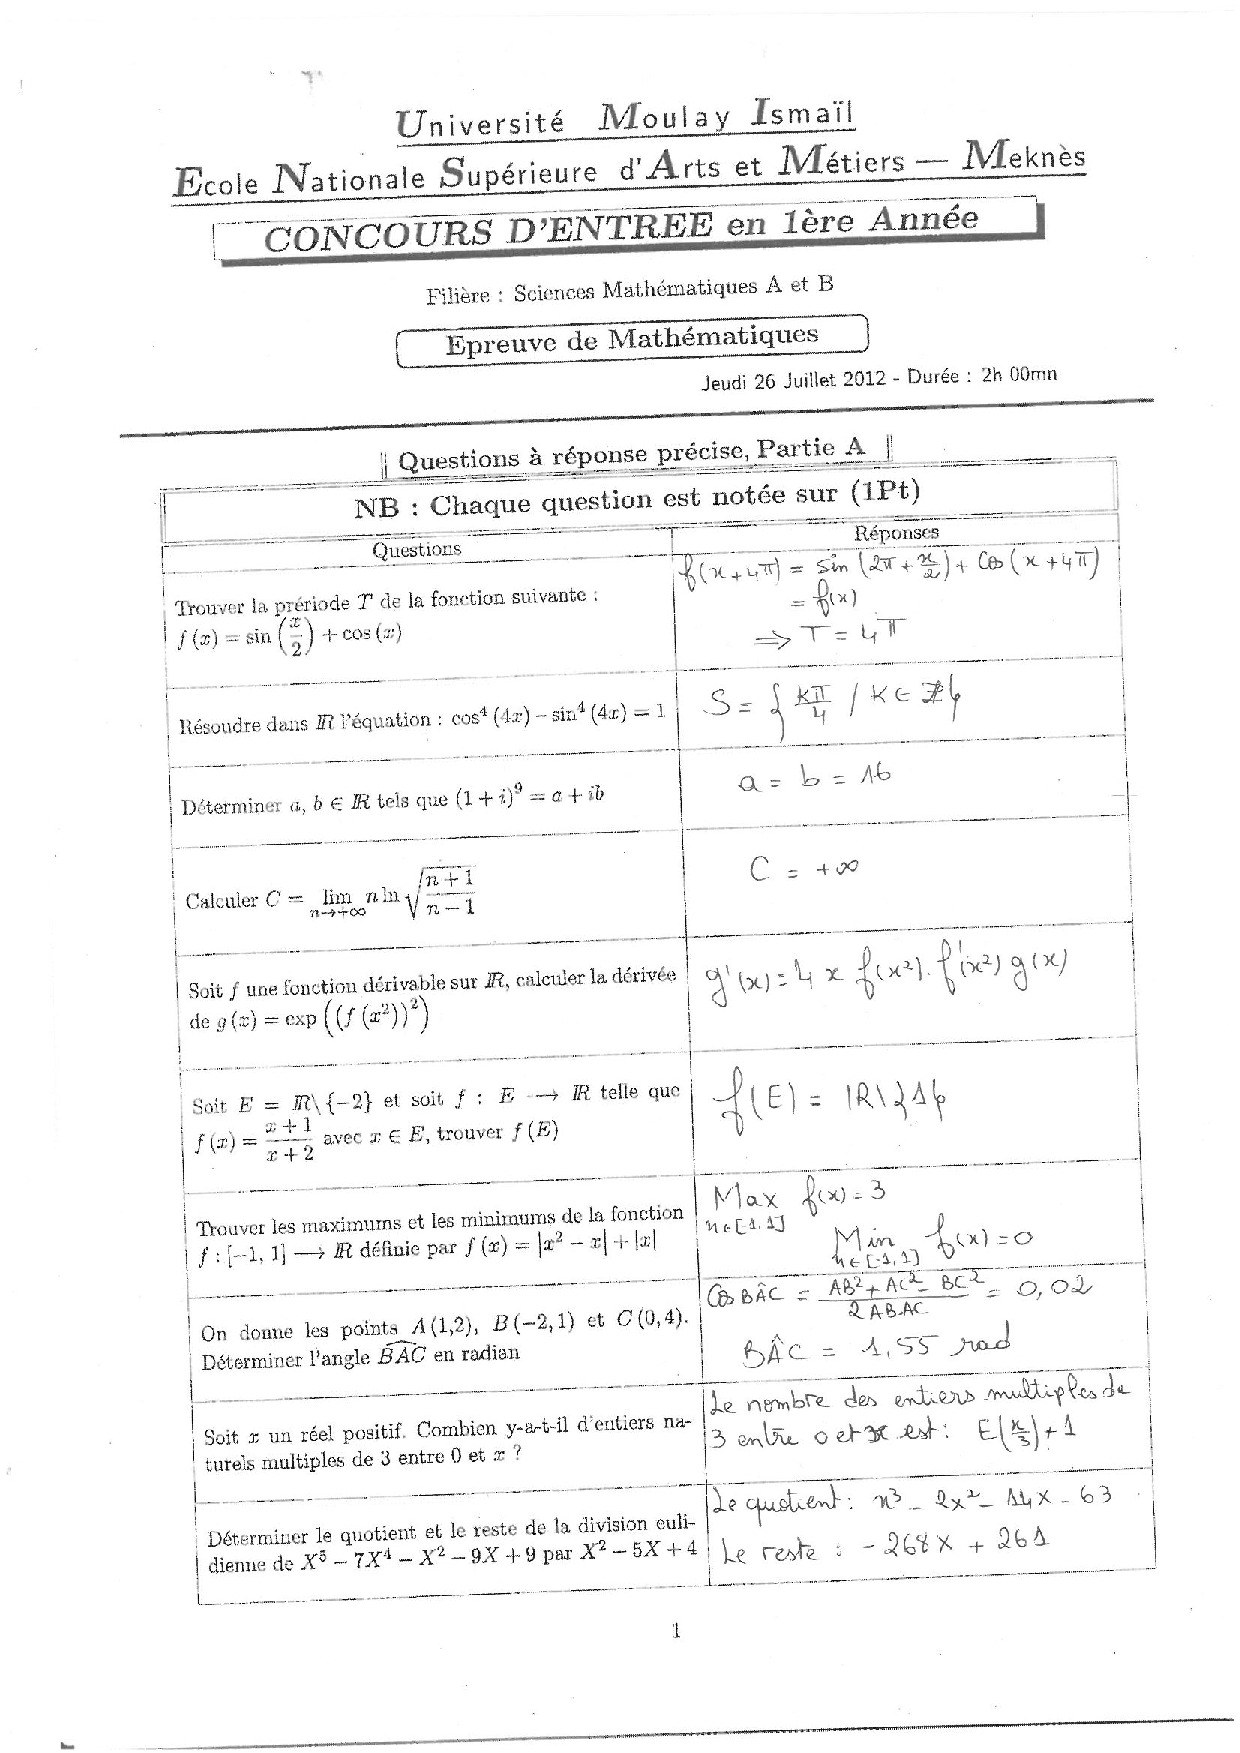 Université Moulay Ismaïl
Ecole Nationale Supérieure d'Arts et Métiers — Meknès
CONCOURS D'ENTREE en 1ère Année
Filière : Sciences Mathématiques A et B
Epreuve de Mathématiques
Jeudi 26 Juillet 2012 - Durée : 2h 00mn
Questions à réponse précise, Partie A
NB : Chaque question est notée sur (1Pt)
Questions
Réponses
Trouver la prériode T de la fonction suivante :
f (x) = sin (x/2) + cos (x)
f(x+4π) = sin (2π + x/2) + cos (x+4π)
= f(x)
⇒ T = 4π
Résoudre dans ℝ l'équation : cos⁴ (4x) – sin⁴ (4x) = 1
S = { kπ/4 / k ∈ ℤ }
Déterminer a, b ∈ ℝ tels que (1 + i)⁹ = a + ib
a = b = 16
Calculer C = lim n ln √((n + 1)/(n – 1))
n→+∞
C = +∞
Soit f une fonction dérivable sur ℝ, calculer la dérivée
de g (x) = exp ((f (x²))²)
g'(x) = 4 x f(x²). f'(x²) g(x)
Soit E = ℝ\ {–2} et soit f : E → ℝ telle que
f (x) = (x + 1)/(x + 2) avec x ∈ E, trouver f (E)
f(E) = ℝ\{1}
Trouver les maximums et les minimums de la fonction
f : [–1, 1] → ℝ définie par f (x) = |x² – x| + |x|
Max f(x) = 3
x∈[-1,1]
Min f(x) = 0
x∈[-1,1]
On donne les points A (1,2), B (–2,1) et C (0,4).
Déterminer l'angle BAC en radian
Cos BÂC = (AB² + AC² - BC²)/(2 AB.AC) = 0,02
BÂC = 1,55 rad
Soit x un réel positif. Combien y-a-t-il d'entiers na-
turels multiples de 3 entre 0 et x ?
Le nombre des entiers multiples de
3 entre 0 et x est : E(x/3) + 1
Déterminer le quotient et le reste de la division eucli-
dienne de X⁵ – 7X⁴ – X² – 9X + 9 par X² – 5X + 4
Le quotient : x³ - 2x² - 14x - 63
Le reste : -268x + 261
1